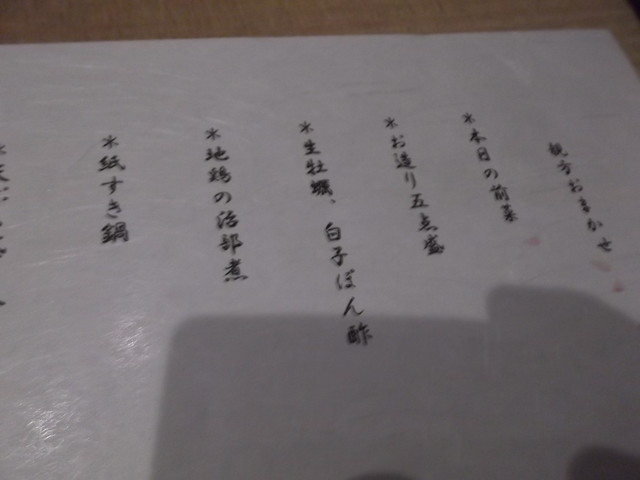 親方おまかせ
*本日の前菜
*お造り五点盛
*生牡蠣、白子ぽん酢
*地鶏の治部煮
*紙すき鍋